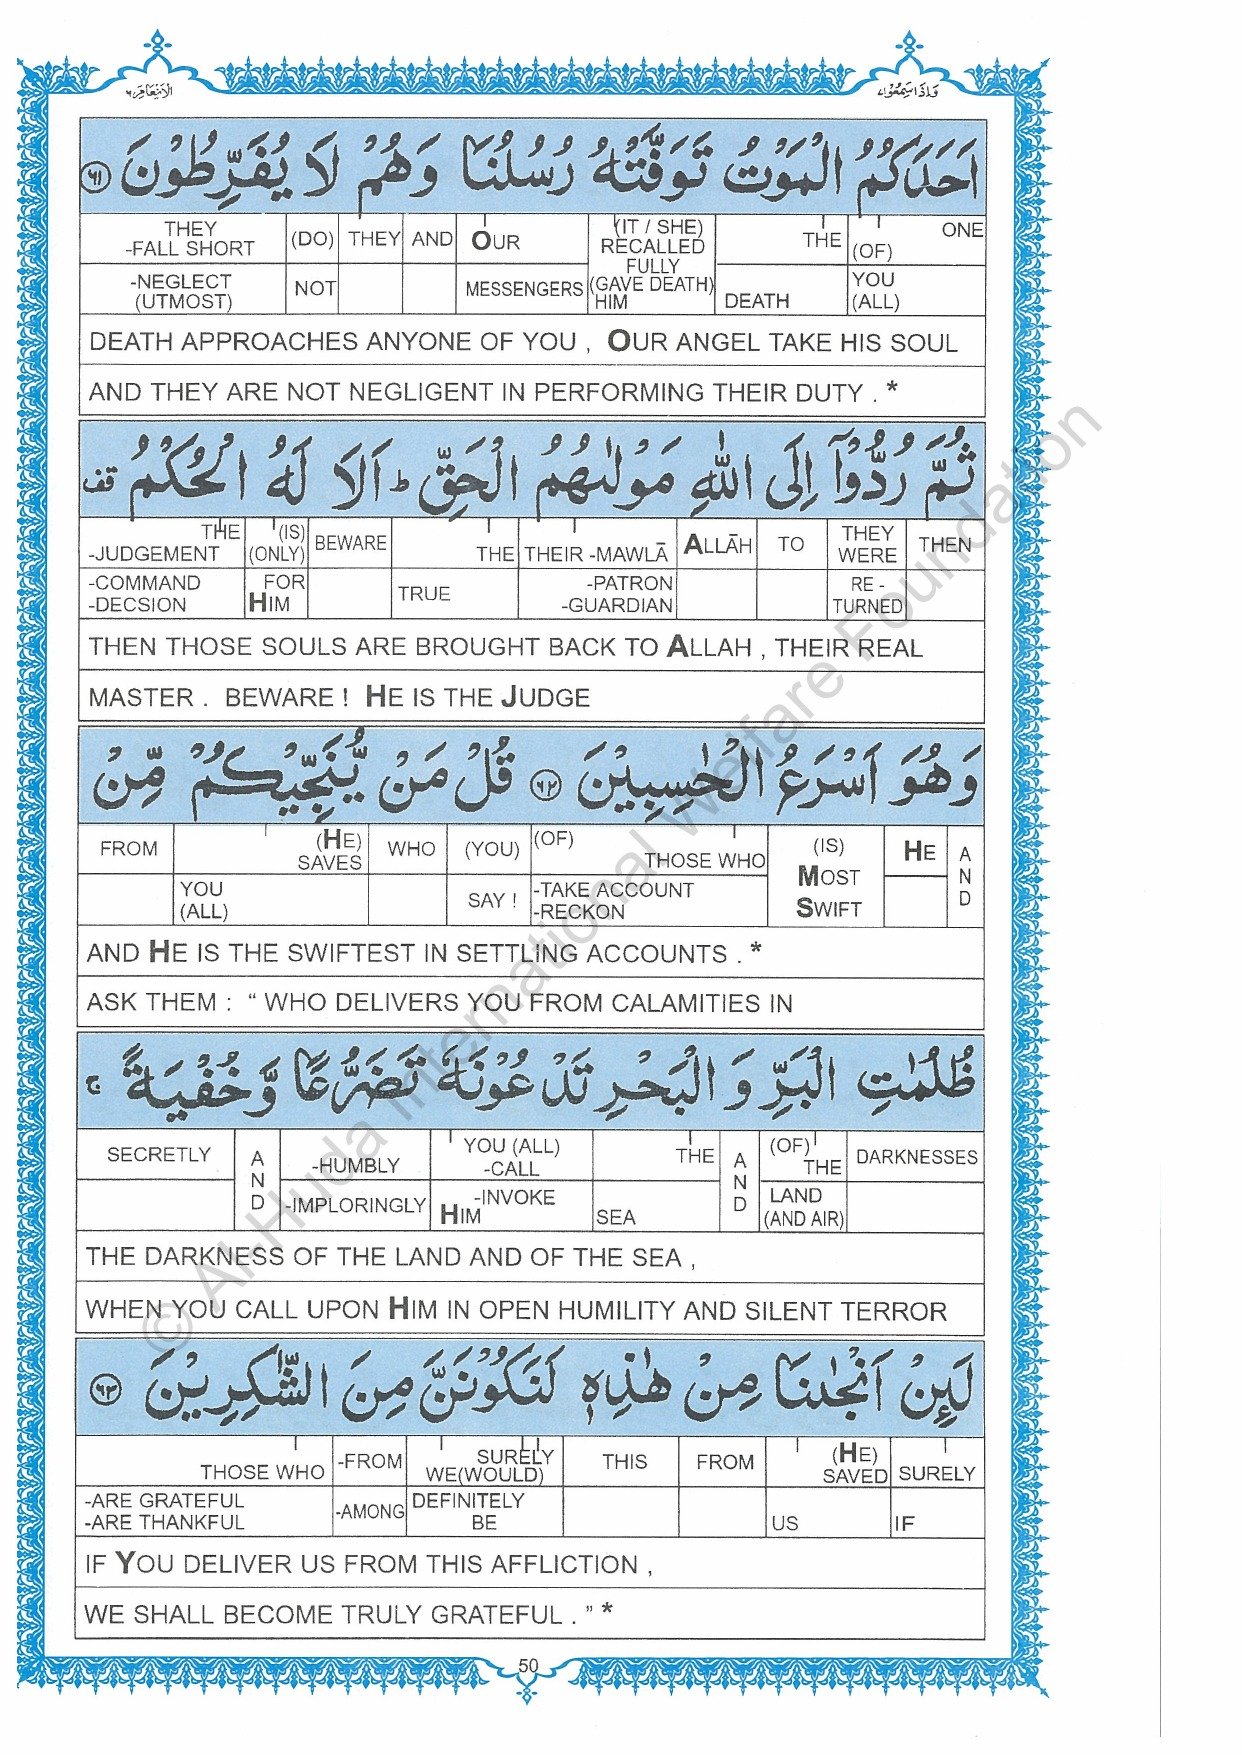 وَاِذَا سَمِعُوْا ٧
الْاَنْعَام ٦
اَحَدَكُمُ الْمَوْتُ تَوَفَّتْهُ رُسُلُنَا وَهُمْ لَا يُفَرِّطُوْنَ ﴿٦١﴾
THEY (DO) THEY AND OUR (IT / SHE) THE (OF) ONE
-FALL SHORT RECALLED
FULLY
-NEGLECT NOT MESSENGERS (GAVE DEATH) DEATH YOU
(UTMOST) HIM (ALL)
DEATH APPROACHES ANYONE OF YOU , OUR ANGEL TAKE HIS SOUL
AND THEY ARE NOT NEGLIGENT IN PERFORMING THEIR DUTY . *
ثُمَّ رُدُّوْٓا اِلَى اللّٰهِ مَوْلٰىهُمُ الْحَقِّ ؕ اَلَا لَهُ الْحُكْمُ قف
THE (IS) BEWARE THE THEIR -MAWLĀ ALLĀH TO THEY THEN
-JUDGEMENT (ONLY) WERE
-COMMAND FOR TRUE -PATRON RE -
-DECSION HIM -GUARDIAN TURNED
THEN THOSE SOULS ARE BROUGHT BACK TO ALLAH , THEIR REAL
MASTER . BEWARE ! HE IS THE JUDGE
وَهُوَ اَسْرَعُ الْحٰسِبِيْنَ ﴿٦٢﴾ قُلْ مَنْ يُّنَجِّيْكُمْ مِّنْ
FROM (HE) WHO (YOU) (OF) (IS) HE AND
SAVES THOSE WHO MOST
YOU SAY ! -TAKE ACCOUNT SWIFT
(ALL) -RECKON
AND HE IS THE SWIFTEST IN SETTLING ACCOUNTS . *
ASK THEM : “ WHO DELIVERS YOU FROM CALAMITIES IN
ظُلُمٰتِ الْبَرِّ وَ الْبَحْرِ تَدْعُوْنَهٗ تَضَرُّعًا وَّخُفْيَةً ۚ
SECRETLY AND -HUMBLY YOU (ALL) THE AND (OF) DARKNESSES
-CALL THE
-IMPLORINGLY -INVOKE SEA LAND
HIM (AND AIR)
THE DARKNESS OF THE LAND AND OF THE SEA ,
WHEN YOU CALL UPON HIM IN OPEN HUMILITY AND SILENT TERROR
لَئِنْ اَنْجٰىنَا مِنْ هٰذِهٖ لَنَكُوْنَنَّ مِنَ الشّٰكِرِيْنَ ﴿٦٣﴾
THOSE WHO -FROM SURELY THIS FROM (HE) SURELY
WE(WOULD) SAVED
-ARE GRATEFUL -AMONG DEFINITELY US IF
-ARE THANKFUL BE
IF YOU DELIVER US FROM THIS AFFLICTION ,
WE SHALL BECOME TRULY GRATEFUL . ” *
50
© Al-Huda International Welfare Foundation